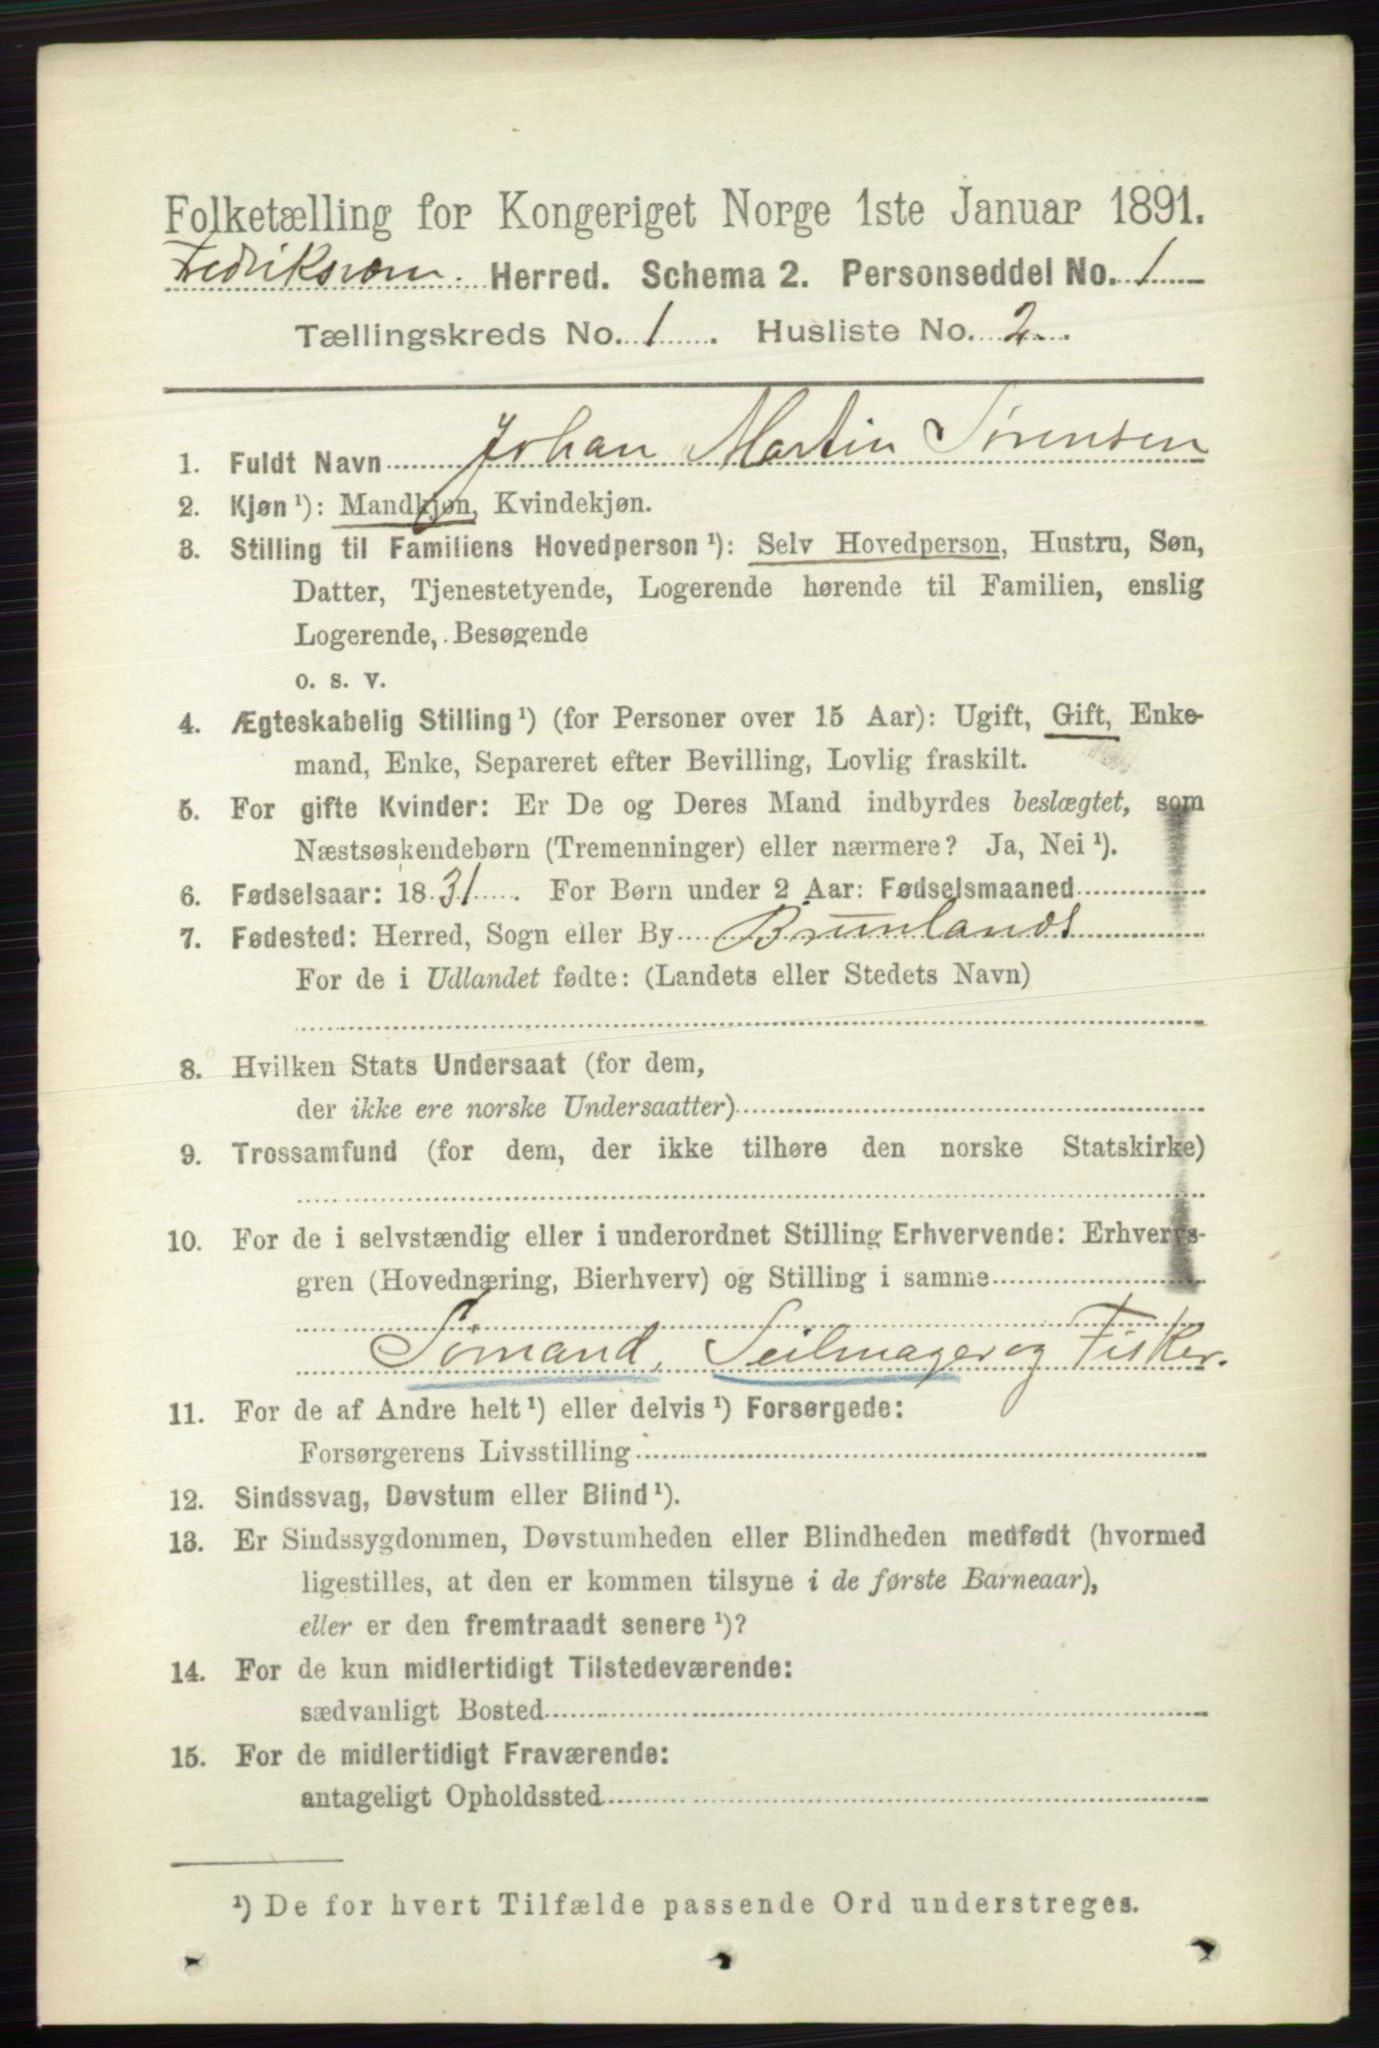 Folketælling for Kongeriget Norge 1ste Januar 1891.
Fredriksværn. Herred. Schema 2. Personseddel No. 1
Tællingskreds No. 1. Husliste No. 2.
1. Fuldt Navn Johan Martin Sørensen
2. Kjøn ¹): Mandkjøn, Kvindekjøn.
3. Stilling til Familiens Hovedperson ¹): Selv Hovedperson, Hustru, Søn,
Datter, Tjenestetyende, Logerende hørende til Familien, enslig
Logerende, Besøgende
o. s. v.
4. Ægteskabelig Stilling ¹) (for Personer over 15 Aar): Ugift, Gift, Enke-
mand, Enke, Separeret efter Bevilling, Lovlig fraskilt.
5. For gifte Kvinder: Er De og Deres Mand indbyrdes beslægtet, som
Næstsøskendebørn (Tremenninger) eller nærmere? Ja, Nei ¹).
6. Fødselsaar: 1831. For Børn under 2 Aar: Fødselsmaaned
7. Fødested: Herred, Sogn eller By Brunlands
For de i Udlandet fødte: (Landets eller Stedets Navn)
8. Hvilken Stats Undersaat (for dem,
der ikke ere norske Undersaatter)
9. Trossamfund (for dem, der ikke tilhøre den norske Statskirke)
10. For de i selvstændig eller i underordnet Stilling Erhvervende: Erhvervs-
gren (Hovednæring, Bierhverv) og Stilling i samme
Sømand, Seilmager og Fisker.
11. For de af Andre helt ¹) eller delvis ¹) Forsørgede:
Forsørgerens Livsstilling
12. Sindssvag, Døvstum eller Blind ¹).
13. Er Sindssygdommen, Døvstumheden eller Blindheden medfødt (hvormed
ligestilles, at den er kommen tilsyne i de første Barneaar),
eller er den fremtraadt senere ¹)?
14. For de kun midlertidigt Tilstedeværende:
sædvanligt Bosted
15. For de midlertidigt Fraværende:
antageligt Opholdssted
¹) De for hvert Tilfælde passende Ord understreges.